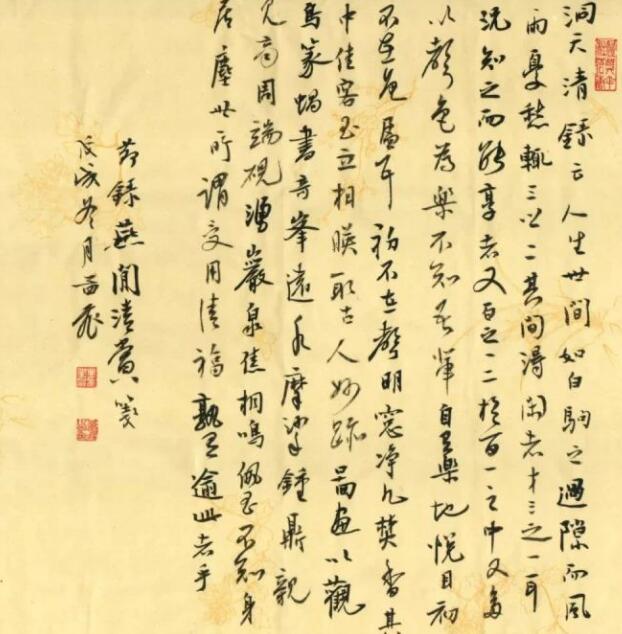 洞天清錄云人生世間如白駒之過隙而風
雨憂愁輒三之二其間得閑者才三之一耳
況知之而能享者又百之一二於百一之中又多
以聲色為樂不知吾輩自有樂地悅目初
不在色盈耳初不在聲明窗淨几焚香其
中佳客玉立相映取古人妙跡啚畫以觀
鳥篆蝸書奇峯遠水摩挲鐘鼎親
見商周端硯湧巖泉焦桐鳴佩玉不知身
居塵世所謂受用清福孰有逾此者乎
節錄燕閒清賞箋
戊戌冬月